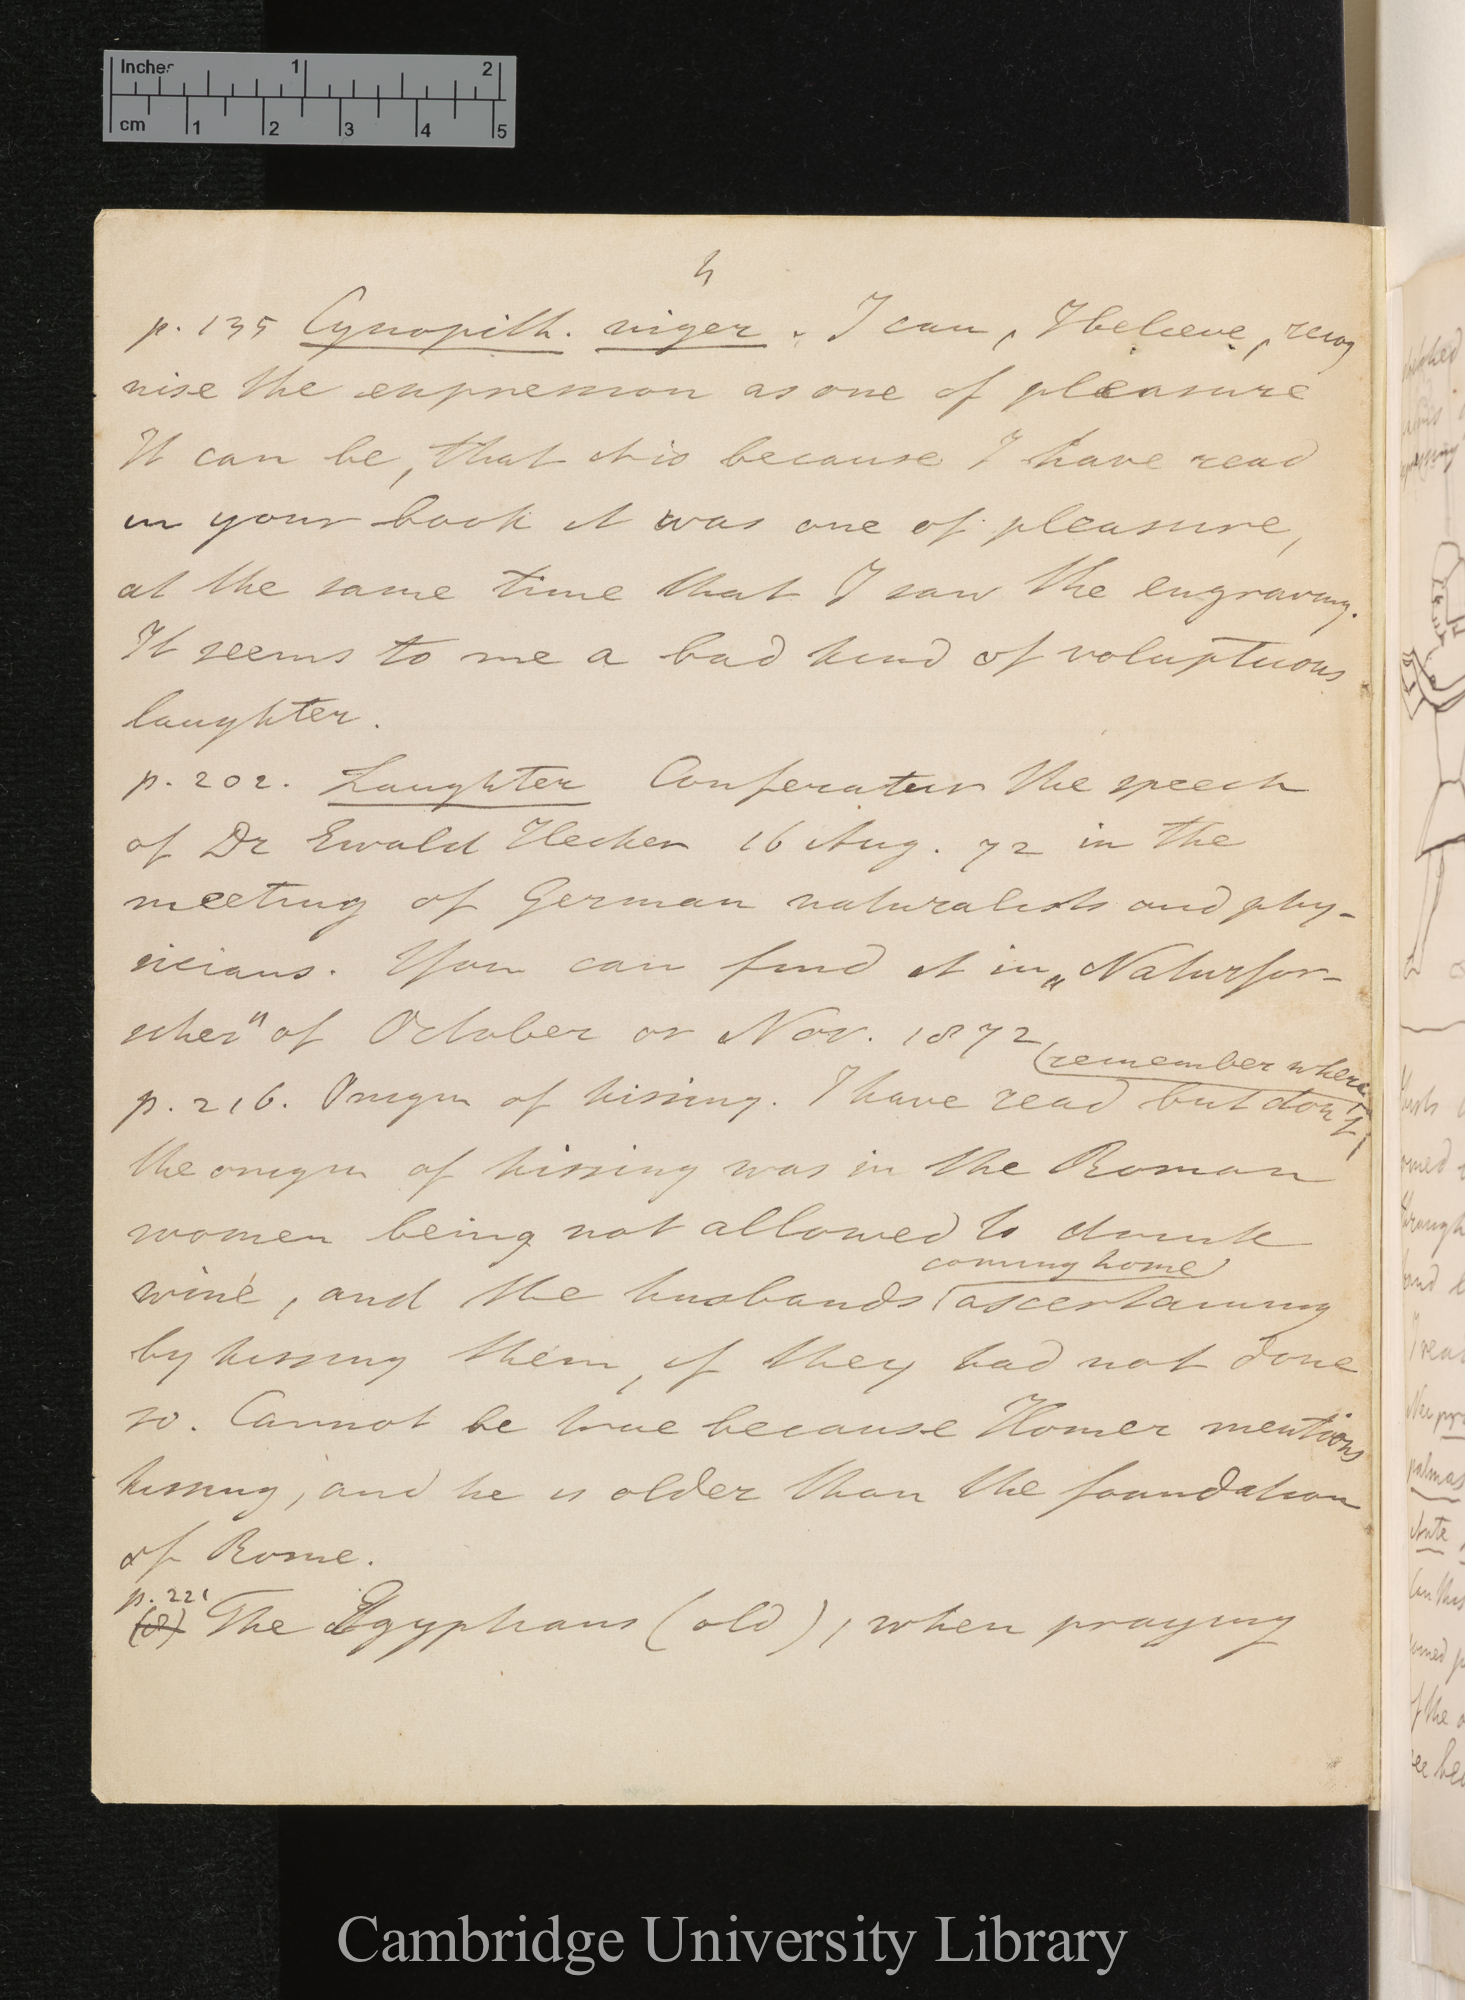 Inches 1 2
cm 1 2 3 4 5
4
p. 135 Cynopith. niger. I can, I believe, recog
nise the expression as one of pleasure
It can be, that it is because I have read
in your book it was one of pleasure,
at the same time that I saw the engraving.
It seems to me a bad kind of voluptuous
laughter.
p. 202. Laughter Conferatur the speech
of Dr Ewald Hecker 16 Aug. 72 in the
meeting of German naturalists and phy-
sicians. You can find it in „Naturfor-
scher" of October or Nov. 1872
(remember where
p. 216. Origin of kissing. I have read but don't
the origin of kissing was in the Roman
women being not allowed to drink
coming home
wine, and the husbands ascertaining
by kissing them, if they had not done
so. Cannot be true because Homer mentions
kissing, and he is older than the foundation
of Rome.
p. 221
The Egyptians (old), when praying
Cambridge University Library